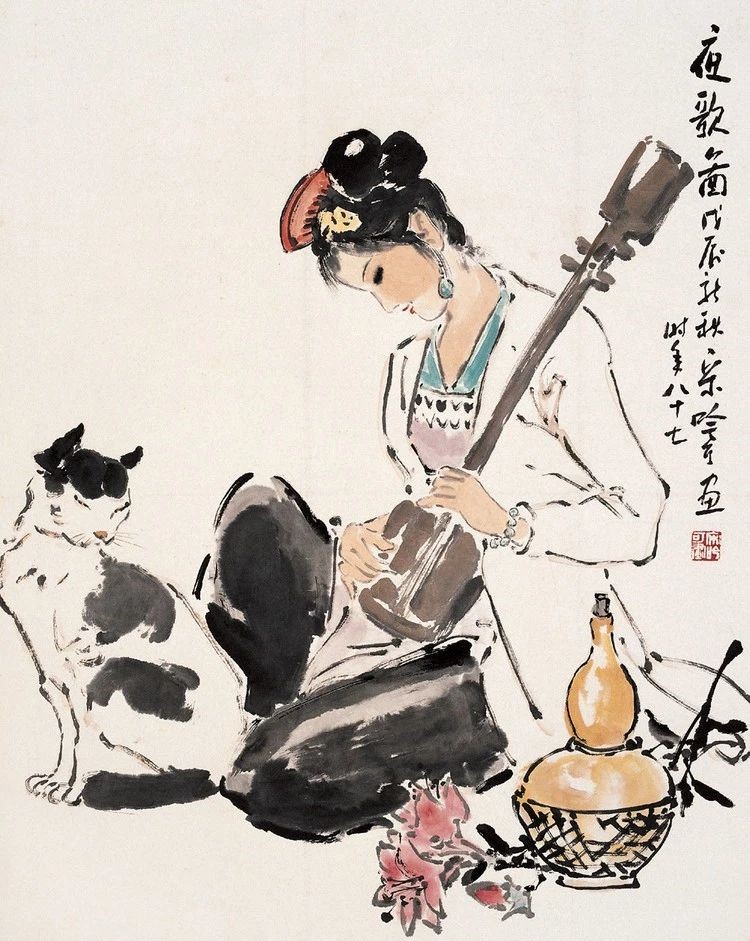 夜歌图戊辰新秋宋吟可画
时年八十七